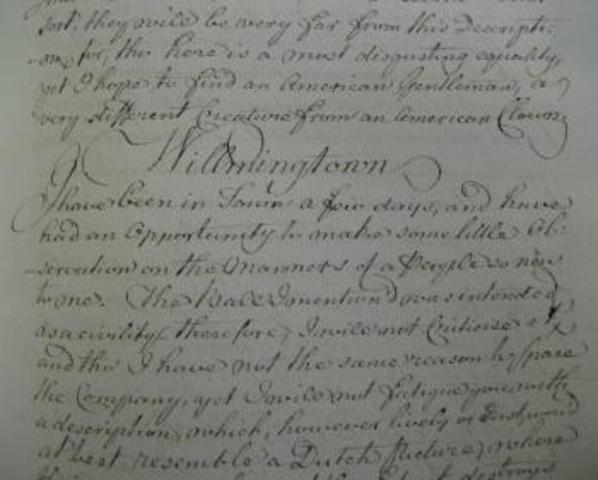 sort: they will be very far from this Descripti-
-on, for, tho' here is a most disgusting equality,
yet I hope to find an American Gentleman, a
very different Creature from an American Clown,
Willmingtown
I have been in Town a few days, and have
had an opportunity to make some little Ob-
-servation on the Manners of a People so new
to me. The Ball I mention'd was intended
as a civility, therefore, I will not Criticise it
and tho' I have not the same reason to spare
the Company, yet I will not fatigue you with
a description, which, however lively or
at best resemble a Dutch picture, where